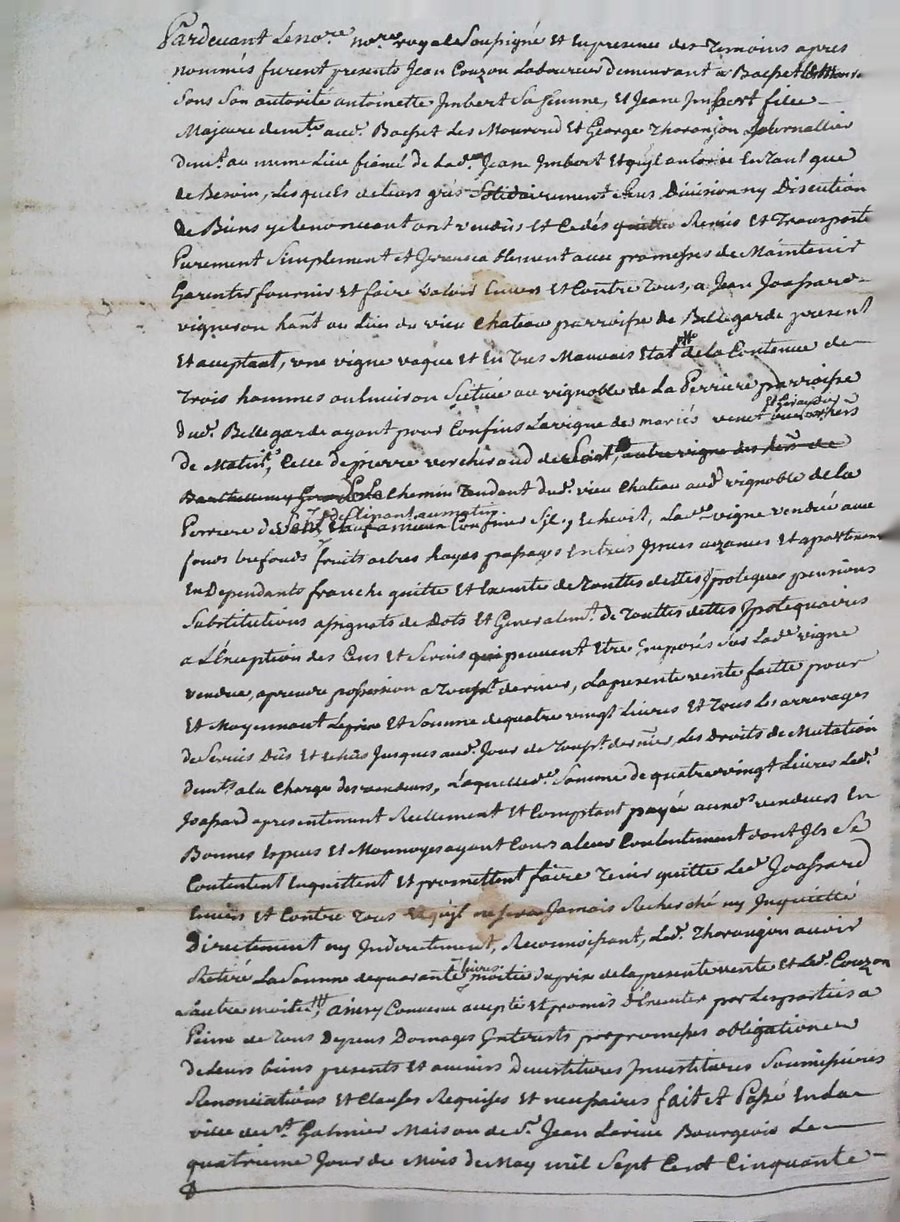 Pardevant Le no.re no.re royal Soussigné et En presence des Temoins apres
nommés furent presents Jean Couzon Laboureur demeurant a Bacset
Sous Son autorité antoinette Jmbert Sa femme, et Jeane Jmbert fille
Majeure dem.te aud. Bacset Les Mouraud et George Thoranjon Journallier
dem.t au meme Lieu fiancé de Lad.e Jeane Jmbert et quil autorise En Tant que
de Besoin, Les quels de leurs grés Solidairement Sans Division ny Discution
de Biens y Renonceant ont vendus et Cedés quittés Remis et Transporté
Purement Simplement et Jrrevocablement avec promesses de Maintenir
Garentir fournir et faire valoir Envers et Contre Tous, a Jean Joassard
vigneron hant au Lieu du vieu Chateau parroisse de Bellegarde present
et acceptant, une vigne vaque et En Tres Mauvais Etat de la Contenue de
Trois hommes ou Environ Scittuée au vignoble de La Perriere parroisse
dud. Bellegarde ayant pour Confins La vigne des mariés
de Matin, Celle de pierre verchiraud de Soir, autre vigne des her.s de
Barthelemy Chemin Tendant dud. vieu Chateau aud. vignoble de la
Perriere de Confins Sil y Echoit, Lad.e vigne vendue avec
fonds trefonds fruits arbres hayes passages Entrées Jssues aizances et apartenances
En Dependants franche quitte et Exempte de Touttes dettes Jpoteques pensions
Substitutions assignats de Dots et Generalem.t de Touttes dettes Jpotequaires
a L'Exception des Cens et Servis qui peuvent Etre Jmposés Sur Lad.e vigne
vendue, a prendre possession a Tousst. dernier, La presente vente faitte pour
Et Moyennant Le prix et Somme de quatre vingt Livres et Tous Les arrerages
de Servis Dûs et Echûs Jusques aud. Jour de Tousst. dernier, Les Droits de Mutation
dem.ts a la Charge des vendeurs, Laquelle d.e Somme de quatre vingt Livres Led.
Joassard a presentement Reellement et Comptant payée auxd.s vendeurs En
Bonnes Especes et Monnoyes ayant Cours a leur Contentement dont Jls Se
Contentent En quittent et promettent faire Tenir quitte Led. Joassard
Envers et Contre Tous et quil ne sera Jamais Recherché ny Jnquietté
Directement ny Jndirectement, Reconnoissant, Led. Thoranjon avoir
Retiré La Somme de quarante livres moitié du prix de la presente vente et Led. Couzon
L'autre moitié, ainsy Convenu accepté et promis d'Executer par Les parties a
Peine de Tous Depens Domages Jnterests par promesses obligation
de Leurs biens presents et avenirs Devestitures Jnvestitures Soumissions
Renonciations et Clauses Requises et necessaires fait et Passé En la
ville de S.t Galmier Maison de S.r Jean Larive Bourgeois Le
quatrieme Jour du Mois de May mil Sept Cent Cinquante